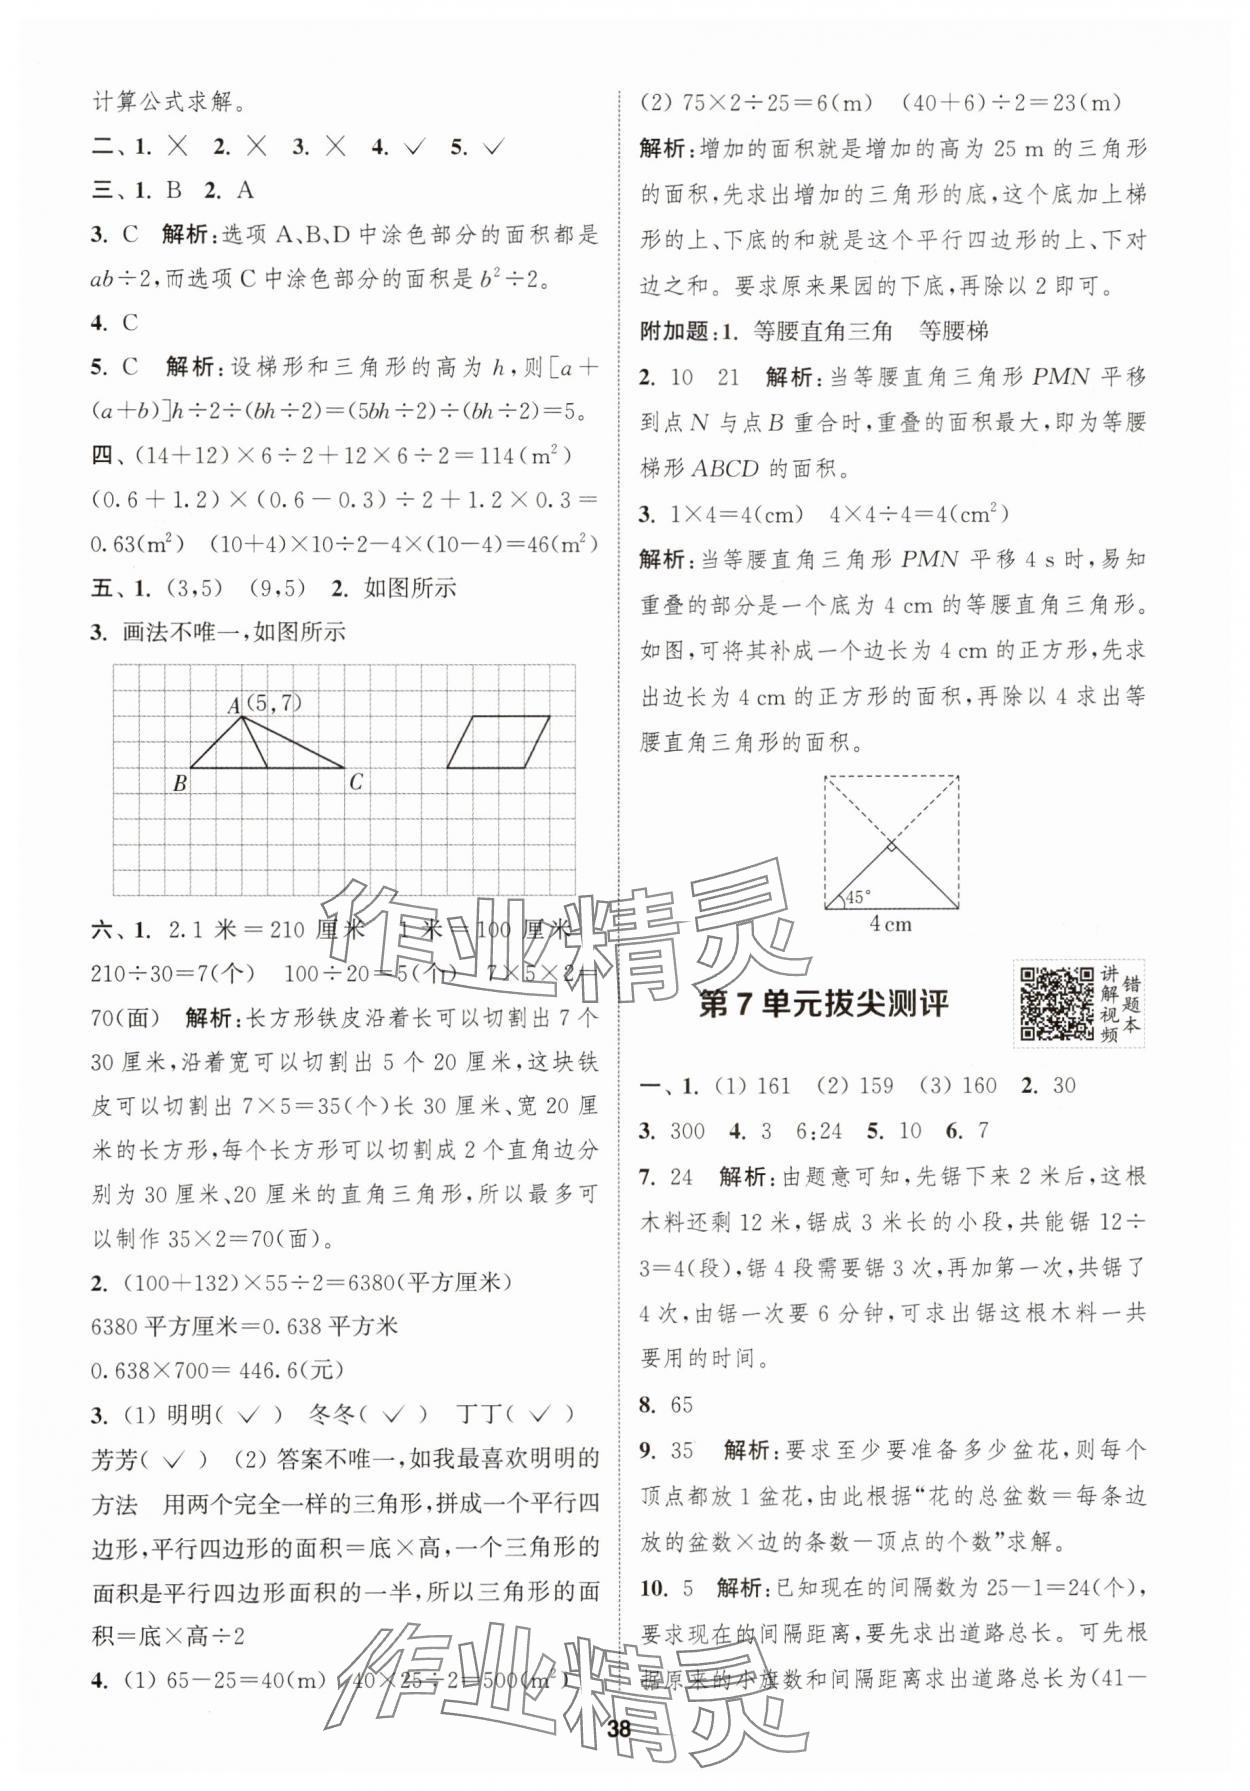 计算公式求解。
二、1. ╳ 2. ╳ 3. ╳ 4. ✓ 5. ✓
三、1. B 2. A
3. C 解析:选项 A、B、D 中涂色部分的面积都是
ab÷2,而选项 C 中涂色部分的面积是 b²÷2。
4. C
5. C 解析:设梯形和三角形的高为 h,则[a+
(a+b)]h÷2÷(bh÷2)=(5bh÷2)÷(bh÷2)=5。
四、(14+12)×6÷2+12×6÷2=114(m²)
(0.6+1.2)×(0.6-0.3)÷2+1.2×0.3=
0.63(m²) (10+4)×10÷2-4×(10-4)=46(m²)
五、1. (3,5) (9,5) 2. 如图所示
3. 画法不唯一,如图所示
A(5,7)
B C
六、1. 2.1 米=210 厘米 1 米=100 厘米
210÷30=7(个) 100÷20=5(个) 7×5×2=
70(面) 解析:长方形铁皮沿着长可以切割出 7 个
30 厘米,沿着宽可以切割出 5 个 20 厘米,这块铁
皮可以切割出 7×5=35(个)长 30 厘米、宽 20 厘
米的长方形,每个长方形可以切割成 2 个直角边分
别为 30 厘米、20 厘米的直角三角形,所以最多可
以制作 35×2=70(面)。
2. (100+132)×55÷2=6380(平方厘米)
6380 平方厘米=0.638 平方米
0.638×700= 446.6(元)
3. (1) 明明( ✓ ) 冬冬( ✓ ) 丁丁( ✓ )
芳芳( ✓ ) (2) 答案不唯一,如我最喜欢明明的
方法 用两个完全一样的三角形,拼成一个平行四
边形,平行四边形的面积=底×高,一个三角形的
面积是平行四边形面积的一半,所以三角形的面
积=底×高÷2
4. (1) 65-25=40(m) 40×25÷2=500(m²)
(2) 75×2÷25=6(m) (40+6)÷2=23(m)
解析:增加的面积就是增加的高为 25 m 的三角形
的面积,先求出增加的三角形的底,这个底加上梯
形的上、下底的和就是这个平行四边形的上、下对
边之和。要求原来果园的下底,再除以 2 即可。
附加题:1. 等腰直角三角 等腰梯
2. 10 21 解析:当等腰直角三角形 PMN 平移
到点 N 与点 B 重合时,重叠的面积最大,即为等腰
梯形 ABCD 的面积。
3. 1×4=4(cm) 4×4÷4=4(cm²)
解析:当等腰直角三角形 PMN 平移 4 s 时,易知
重叠的部分是一个底为 4 cm 的等腰直角三角形。
如图,可将其补成一个边长为 4 cm 的正方形,先求
出边长为 4 cm 的正方形的面积,再除以 4 求出等
腰直角三角形的面积。
45°
4 cm
第 7 单元拔尖测评
讲解视频
错题本
一、1. (1) 161 (2) 159 (3) 160 2. 30
3. 300 4. 3 6:24 5. 10 6. 7
7. 24 解析:由题意可知,先锯下来 2 米后,这根
木料还剩 12 米,锯成 3 米长的小段,共能锯 12÷
3=4(段),锯 4 段需要锯 3 次,再加第一次,共锯了
4 次,由锯一次要 6 分钟,可求出锯这根木料一共
要用的时间。
8. 65
9. 35 解析:要求至少要准备多少盆花,则每个
顶点都放 1 盆花,由此根据“花的总盆数=每条边
放的盆数×边的条数-顶点的个数”求解。
10. 5 解析:已知现在的间隔数为 25-1=24(个),
要求现在的间隔距离,要先求出道路总长。可先根
据原来的小旗数和间隔距离求出道路总长为(41-
38
作业精灵
作业精灵